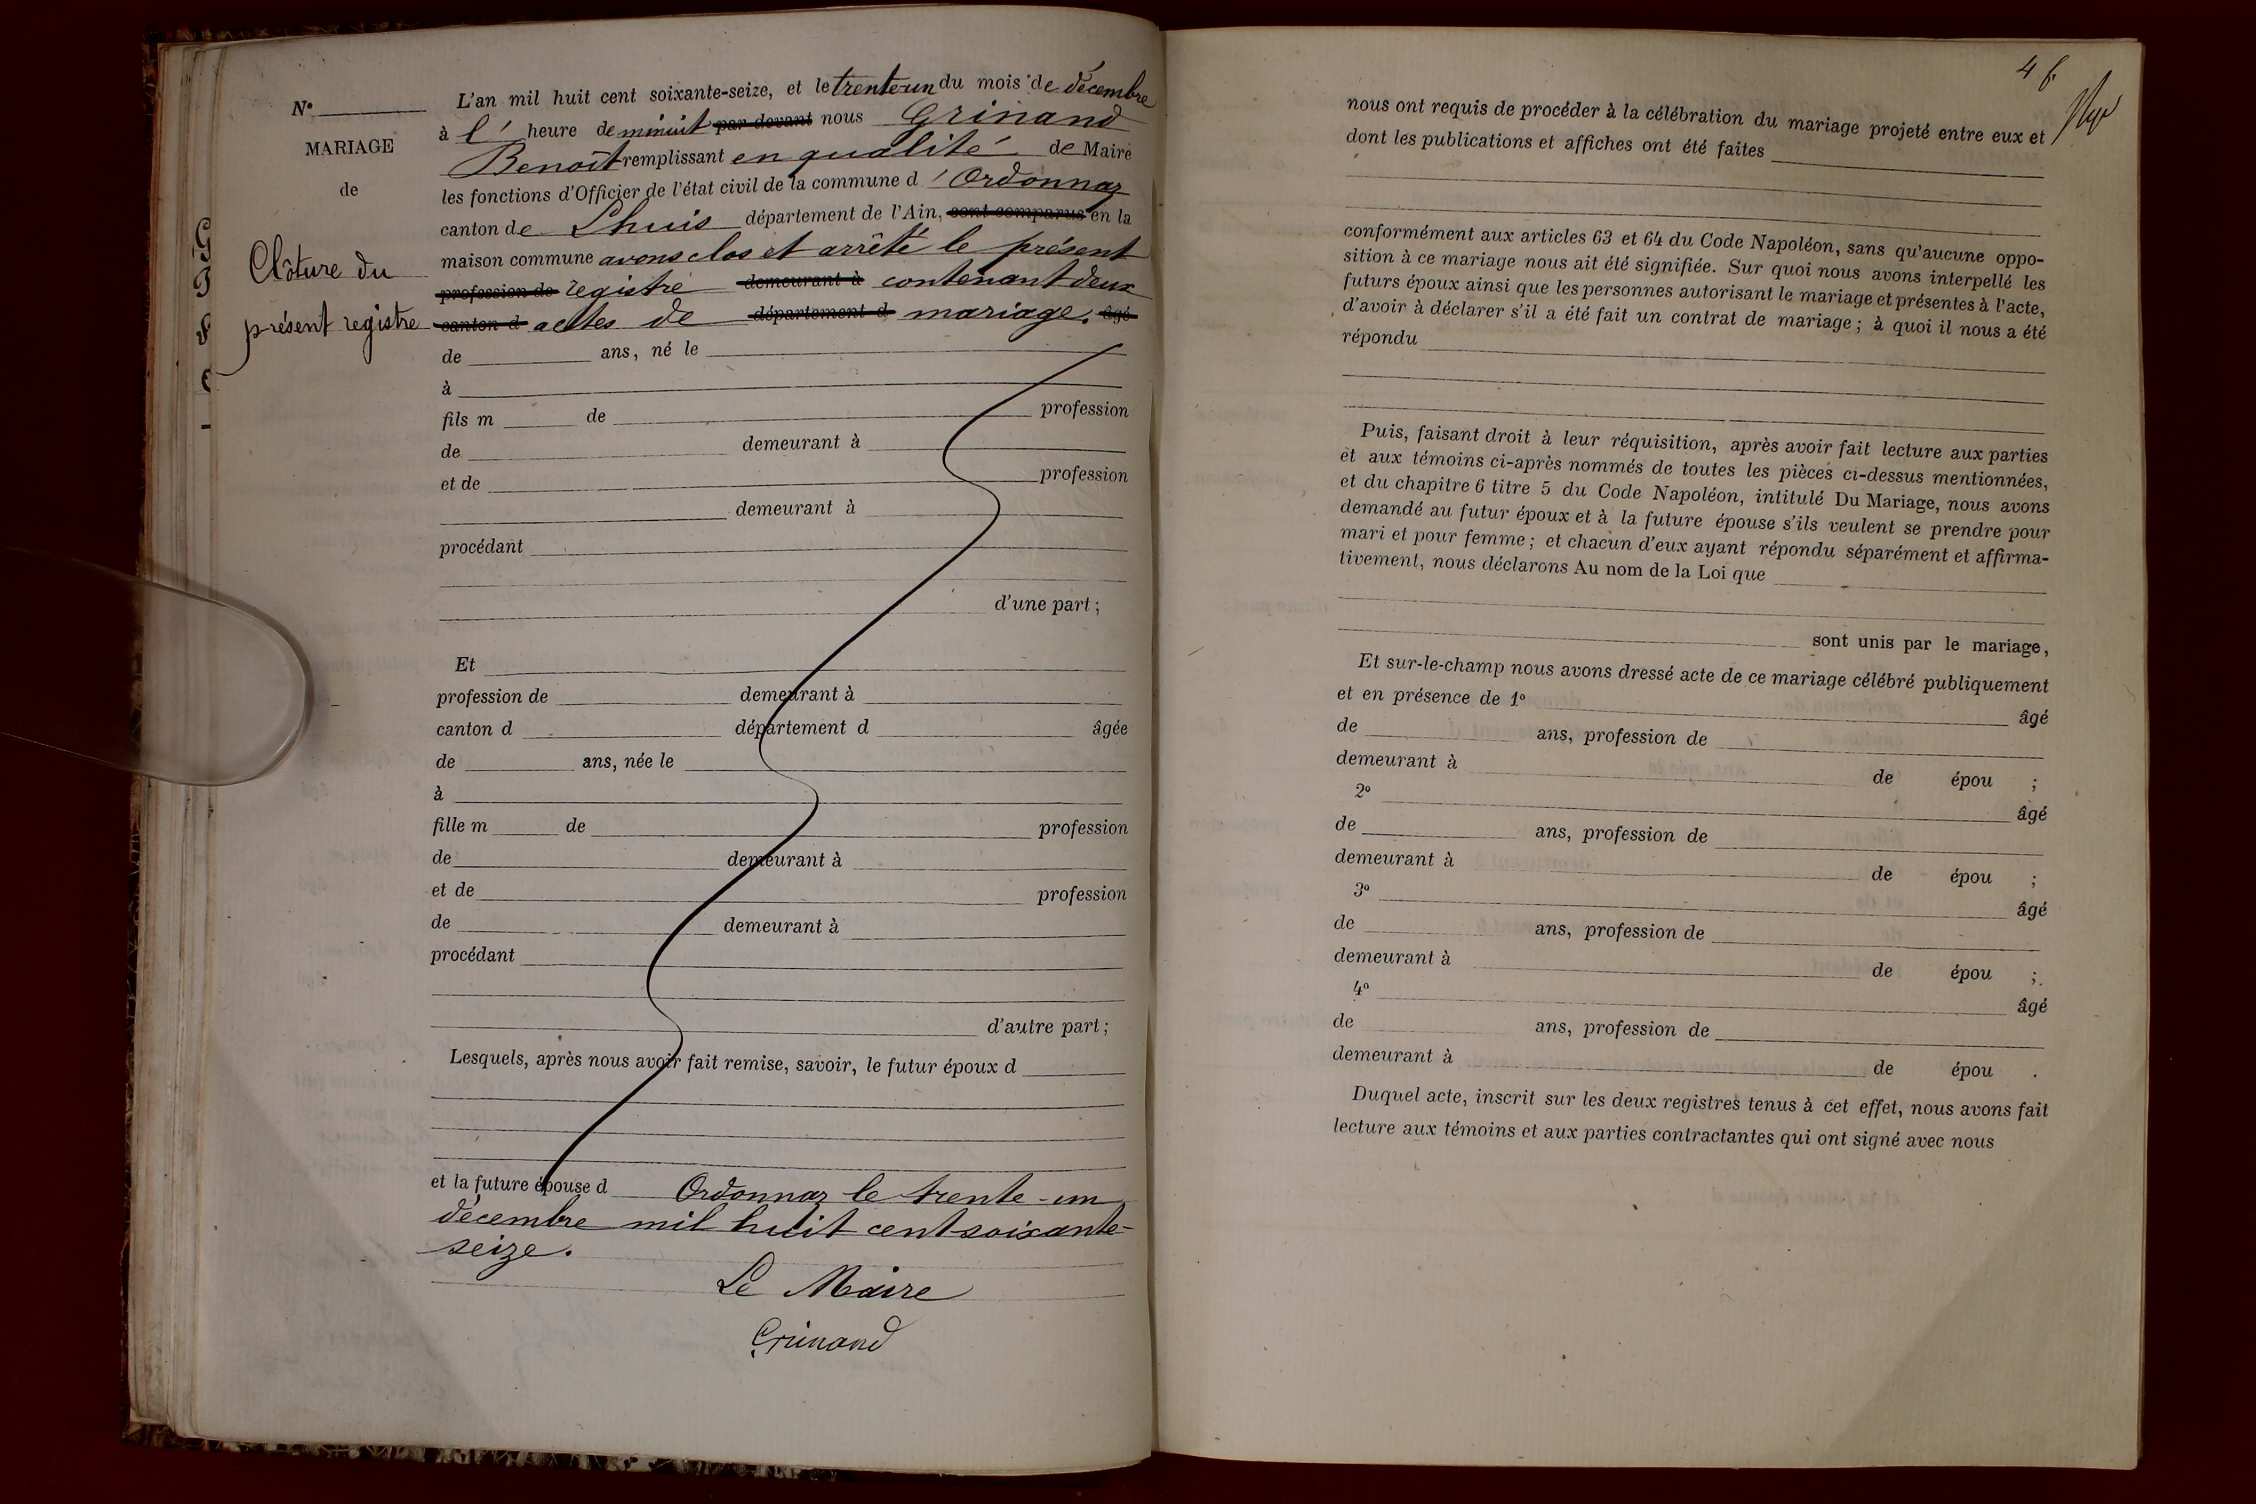 N°
MARIAGE
de
Clôture du
présent registre
L'an mil huit cent soixante-seize, et le trente-un du mois de décembre
à l' heure de minuit par devant nous Grinand
Benoît remplissant en qualité de Maire
les fonctions d'Officier de l'état civil de la commune d'Ordonnaz
canton de Lhuis département de l'Ain, sont comparus en la
maison commune avons clos et arrêté le présent
profession de registre demeurant à contenant deux
canton d actes de département d mariage. âgé
de ans, né le
à
fils m de profession
de demeurant à
et de profession
demeurant à
procédant
d'une part ;
Et
profession de demeurant à
canton d département d âgée
de ans, née le
à
fille m de profession
de demeurant à
et de profession
de demeurant à
procédant
d'autre part ;
Lesquels, après nous avoir fait remise, savoir, le futur époux d
et la future épouse d Ordonnaz le trente-un
décembre mil huit cent soixante-
seize.
Le Maire
Grinand
4
nous ont requis de procéder à la célébration du mariage projeté entre eux et
dont les publications et affiches ont été faites
conformément aux articles 63 et 64 du Code Napoléon, sans qu'aucune oppo-
sition à ce mariage nous ait été signifiée. Sur quoi nous avons interpellé les
futurs époux ainsi que les personnes autorisant le mariage et présentes à l'acte,
d'avoir à déclarer s'il a été fait un contrat de mariage ; à quoi il nous a été
répondu
Puis, faisant droit à leur réquisition, après avoir fait lecture aux parties
et aux témoins ci-après nommés de toutes les pièces ci-dessus mentionnées,
et du chapitre 6 titre 5 du Code Napoléon, intitulé Du Mariage, nous avons
demandé au futur époux et à la future épouse s'ils veulent se prendre pour
mari et pour femme ; et chacun d'eux ayant répondu séparément et affirma-
tivement, nous déclarons Au nom de la Loi que
sont unis par le mariage,
Et sur-le-champ nous avons dressé acte de ce mariage célébré publiquement
et en présence de 1° âgé
de ans, profession de
demeurant à de épou ;
2° âgé
de ans, profession de
demeurant à de épou ;
3° âgé
de ans, profession de
demeurant à de épou ;
4° âgé
de ans, profession de
demeurant à de épou .
Duquel acte, inscrit sur les deux registres tenus à cet effet, nous avons fait
lecture aux témoins et aux parties contractantes qui ont signé avec nous